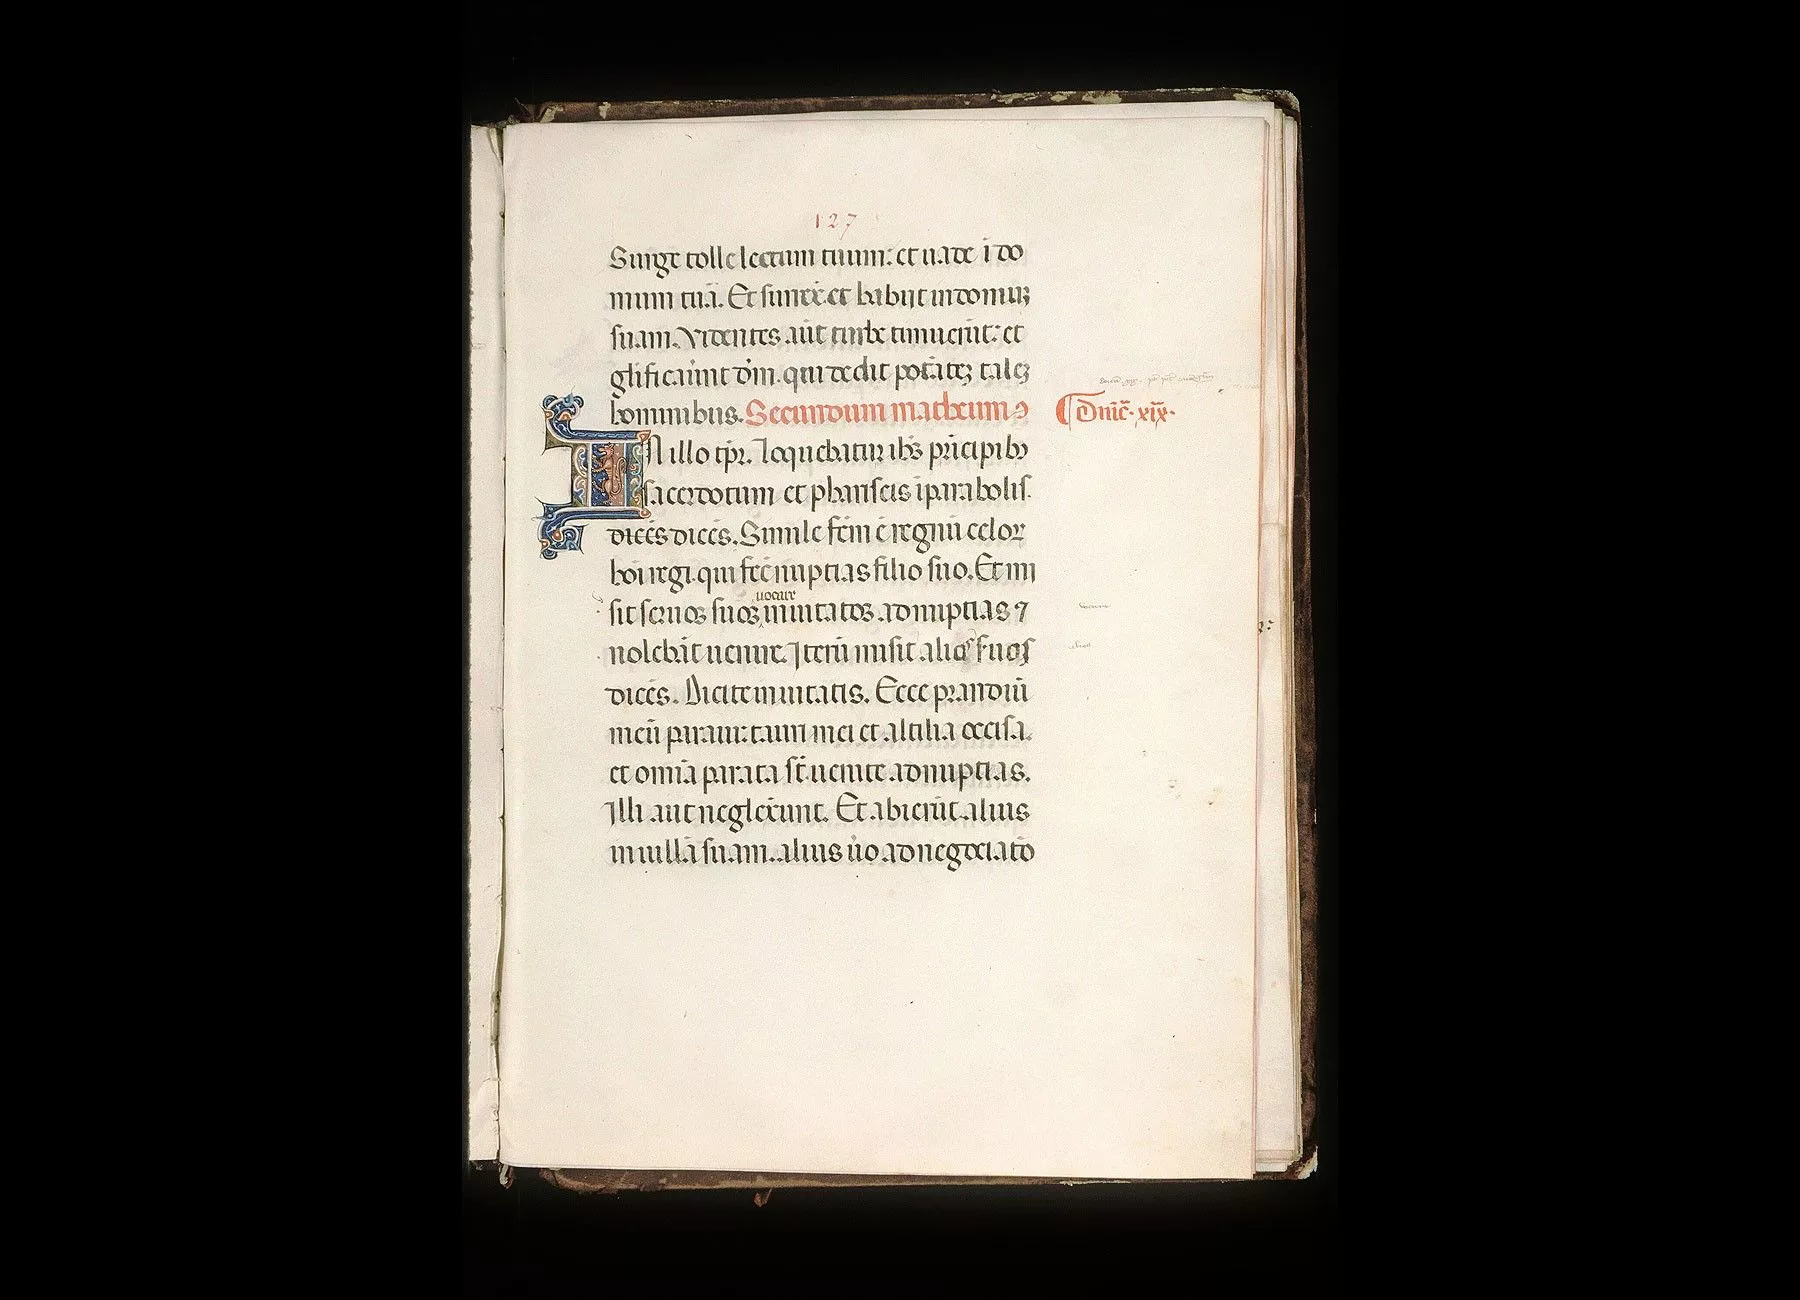 127
Surge tolle lectum tuum: et uade ī do
mum tuā. Et surrex̄ et habijt in domuꝫ
suam. Videntes aūt turbe timuerūt: et
gl̄ificauūnt dm̄. qui dedit potātēꝫ taleꝫ
hominibus. Secundum matheum
Dnīc̄. xix.
IN illo tp̄r. Loquebatur ih̄s pricipibꝫ
sacerdotum et phariseis ī parabolis.
dicēs dicēs. Simile fcm̄ ē regnū celoꝝ
hoī regi. qui fec̄ nuptias filio suo. Et mi
uocare
sit seruos suos inuitatos ad nuptias ⁊
nolebāt uenire. Iterū misit alios suos
dicēs. Dicite inuitatis. Ecce prandiū
meū paraui: tauri mei et altilia occisa.
et omīa parata sr̄t uenite ad nuptias.
Illi aūt neglexerunt. Et abierūt alius
in uillā suam. alius ūo ad negociatō